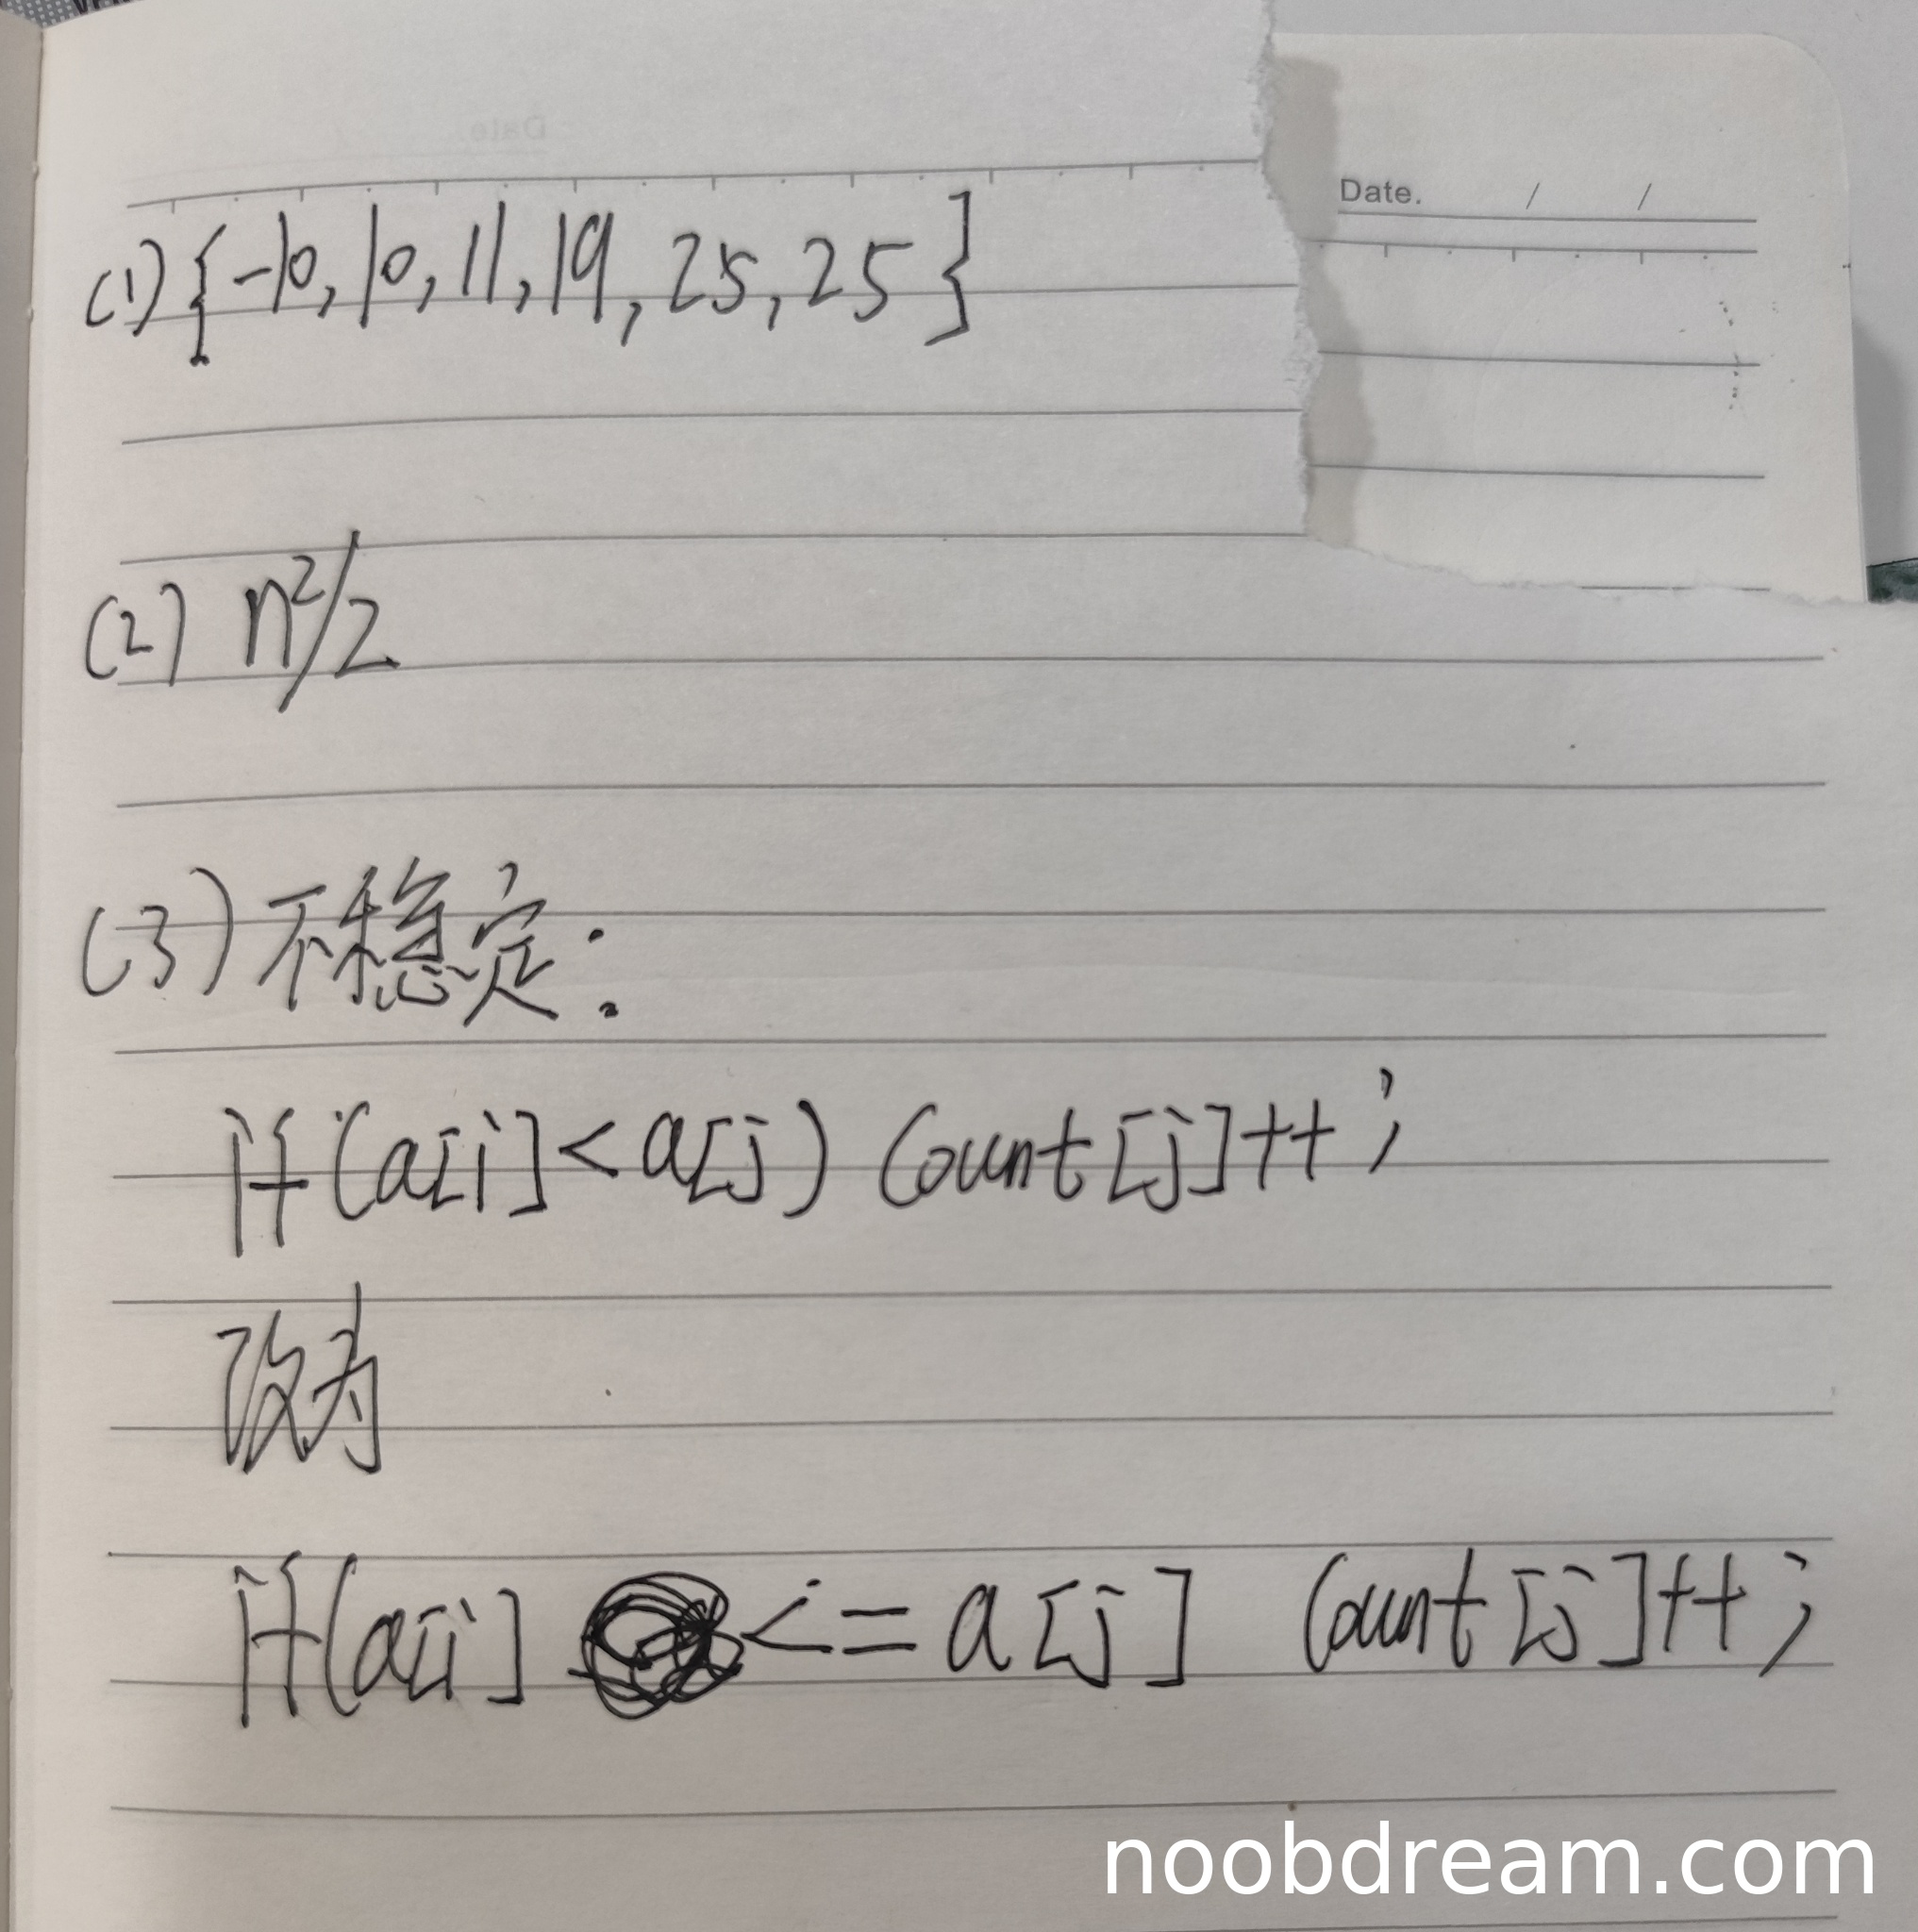 Date. / /
(1) {-10, 10, 11, 19, 25, 25}
(2) n²/2
(3) 不稳定:
if (a[i] < a[j) Count[j]++;
改为
if(a[i] <= a[j] Count[j]++;
noobdream.com